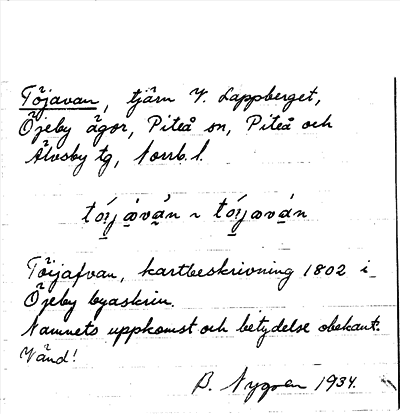 Töjavan, tjärn V. Lappberget,
Öjeby ägor, Piteå sn, Piteå och
Älvsby tg, Norrb. l.
tóɪjava̍n ~ tóɪjavàn
Töijafvan, kartbeskrivning 1802 i
Öjeby byaskrin.
Namnets uppkomst och betydelse obekant.
Vänd!
B. Nygren 1934.